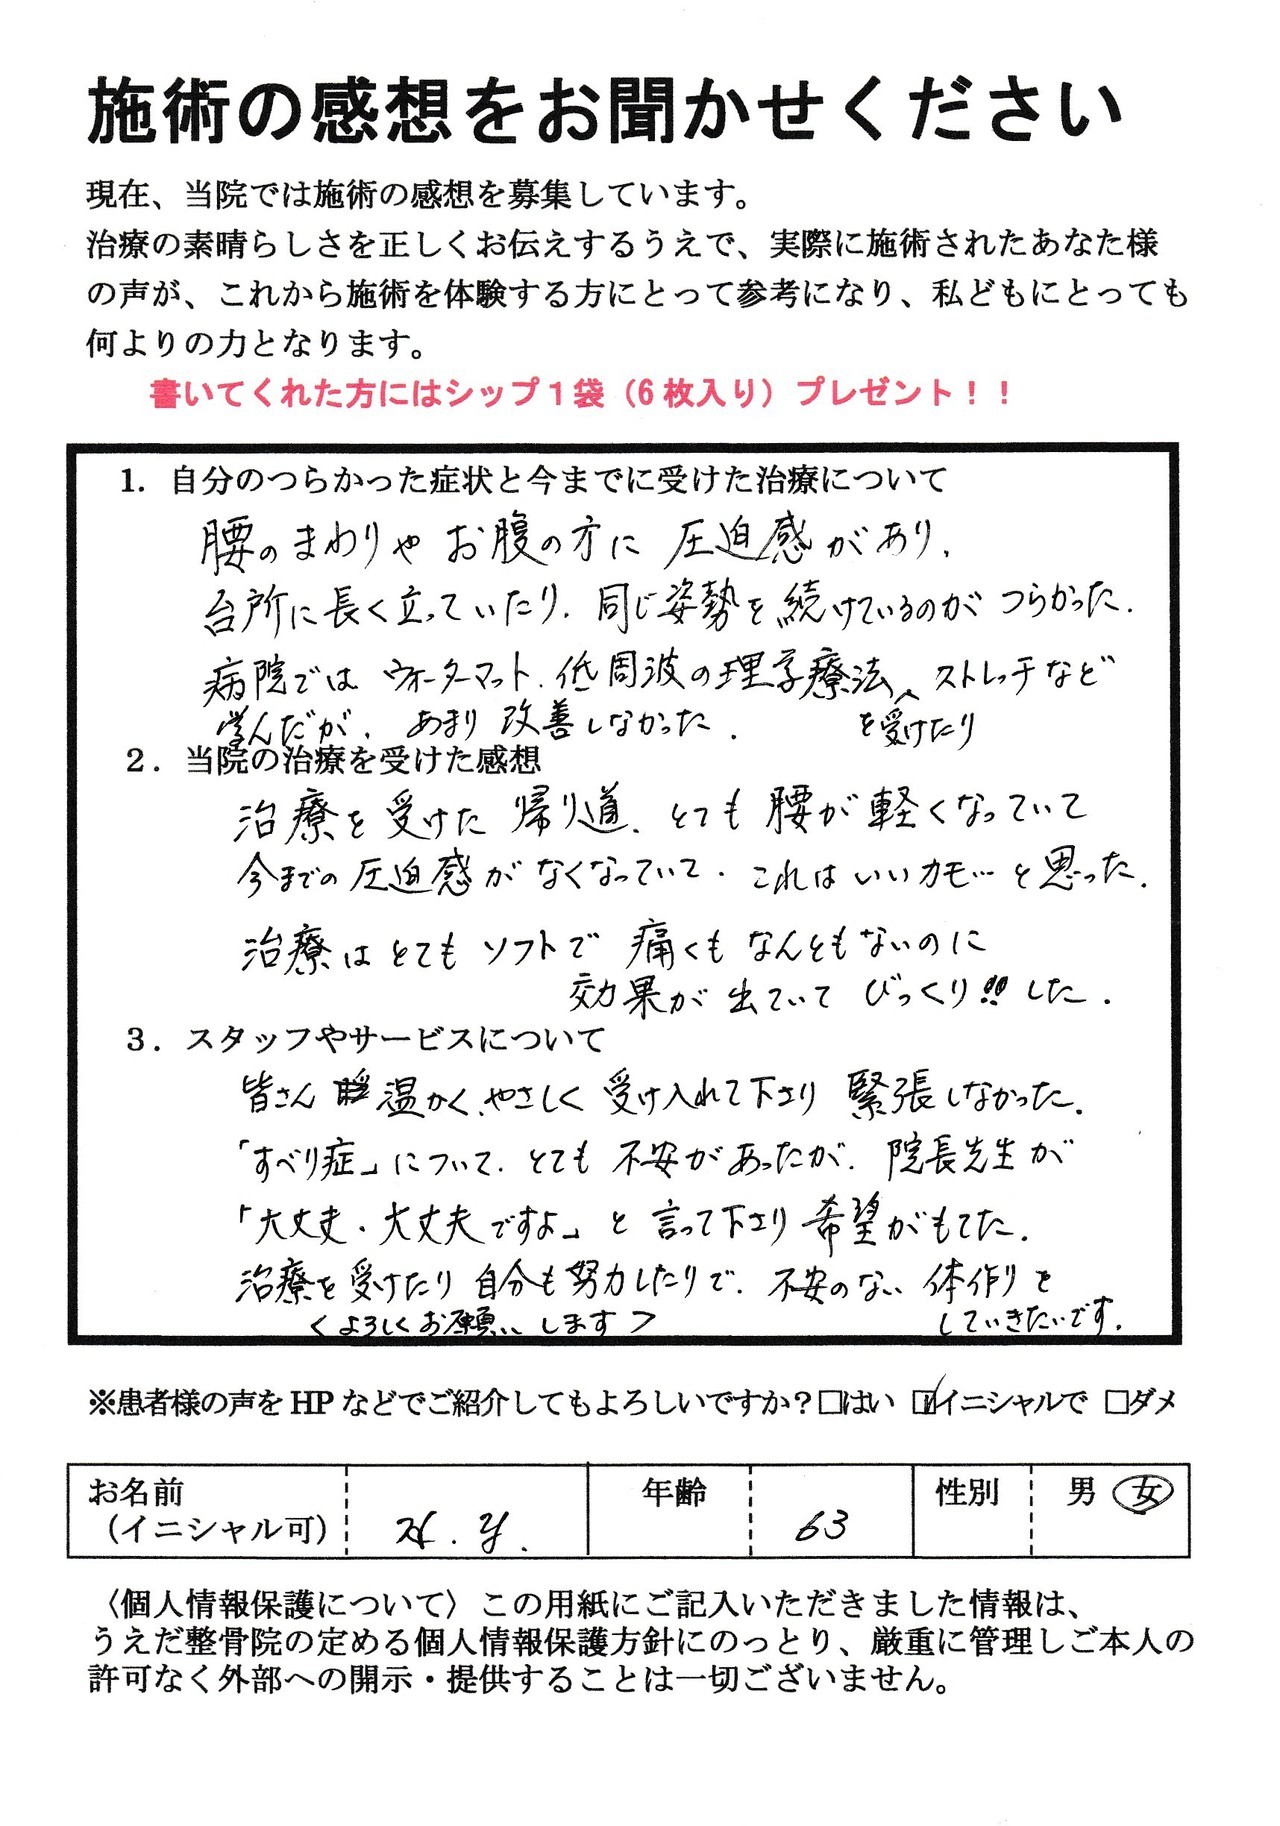 施術の感想をお聞かせください
現在、当院では施術の感想を募集しています。
治療の素晴らしさを正しくお伝えするうえで、実際に施術されたあなた様
の声が、これから施術を体験する方にとって参考になり、私どもにとっても
何よりの力となります。
書いてくれた方にはシップ１袋（6 枚入り）プレゼント！！
1. 自分のつらかった症状と今までに受けた治療について
腰のまわりや お腹の方に 圧迫感があり、
台所に長く立っていたり、同じ姿勢を続けているのが つらかった。
病院では ウォーターマット、低周波の理学療法、ストレッチなど
を受けたり
学んだが、あまり改善しなかった。
２．当院の治療を受けた感想
治療を受けた 帰り道、とても 腰が軽くなっていて
今までの圧迫感がなくなっていて、これは いいカモ… と思った。
治療は とても ソフトで 痛くも なんともないのに
効果が 出ていて びっくり!! した。
３．スタッフやサービスについて
皆さん 温かく、やさしく 受け入れて下さり 緊張しなかった。
「すべり症」について、とても 不安があったが、院長先生が
「大丈夫、大丈夫ですよ」と 言って下さり 希望がもてた。
治療を受けたり 自分も努力したりで、不安のない 体作りを
していきたいです。
＜よろしくお願いします＞
※患者様の声を HP などでご紹介してもよろしいですか？□はい ☑イニシャルで □ダメ
お名前
（イニシャル可） H . Y . 年齢 63 性別 男 女
〈個人情報保護について〉この用紙にご記入いただきました情報は、
うえだ整骨院の定める個人情報保護方針にのっとり、厳重に管理しご本人の
許可なく外部への開示・提供することは一切ございません。